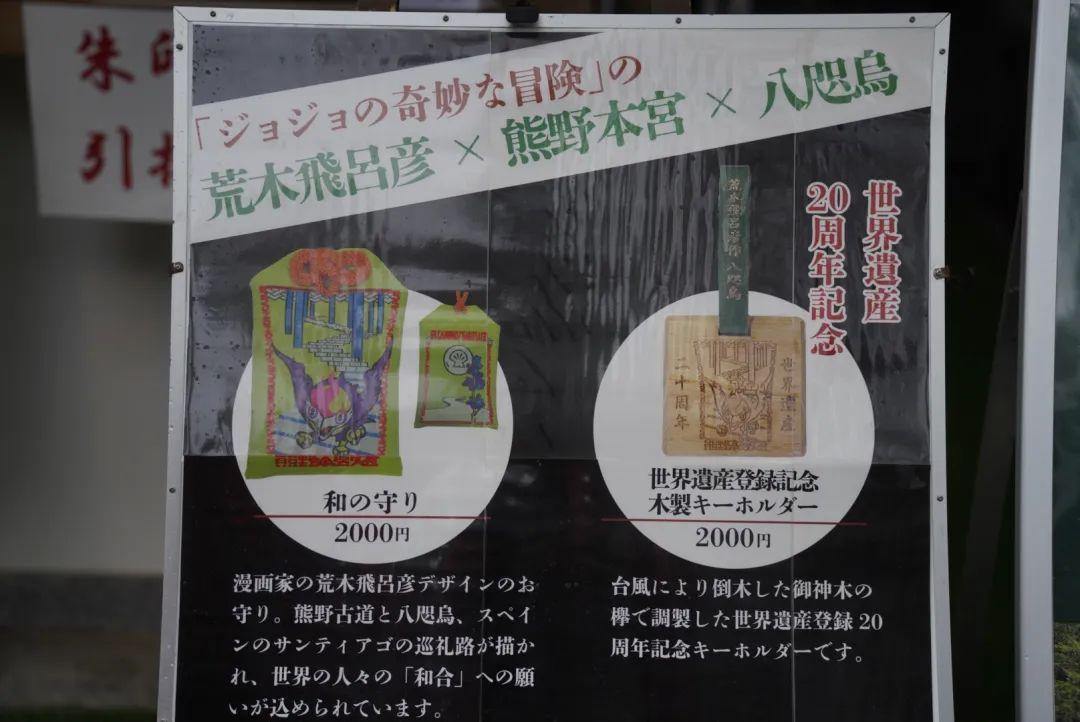 朱印
引
「ジョジョの奇妙な冒険」の
荒木飛呂彦×熊野本宮×八咫烏
世界遺産
20周年記念
荒木飛呂彦作八咫烏
世界遺産
二十周年
和の守り
2000円
世界遺産登録記念
木製キーホルダー
2000円
漫画家の荒木飛呂彦デザインのお
守り。熊野古道と八咫烏、スペイ
ンのサンティアゴの巡礼路が描か
れ、世界の人々の「和合」への願
いが込められています。
台風により倒木した御神木の
欅で調製した世界遺産登録20
周年記念キーホルダーです。